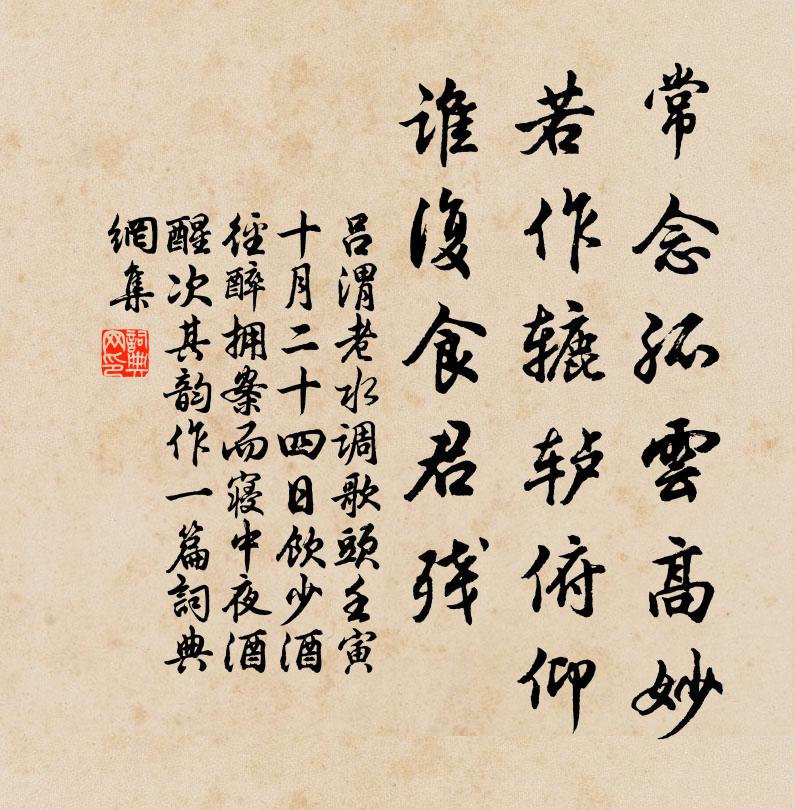 常念孤雲高妙
若作辘轳俯仰
誰復食君残
吕渭老水调歌頭壬寅
十月二十四日飲少酒
徑醉拥案而寝中夜酒
醒次其韵作一篇詞典
網集
詞典
网印